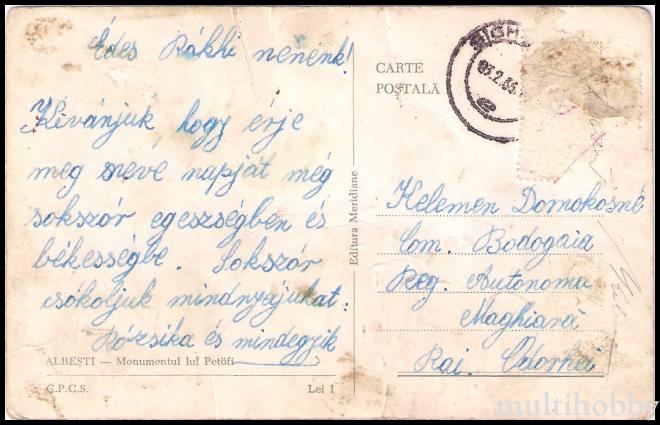 Édes Rákhi nenénk!
Kévánjuk, hogy érje
meg neve napját még
sokszór egeszségben és
békességbe. Sokszór
csókoljuk mindnyájukat:
Rózsika és mindegyik
ALBEȘTI — Monumentul lui Petöfi
C.P.C.S. Lei 1
Editura Meridiane
CARTE
POȘTALĂ
Kelemen Domokosné
Com. Bodogaia
Reg. Autonoma
Maghiară
Rai. Odorhei
multihobby